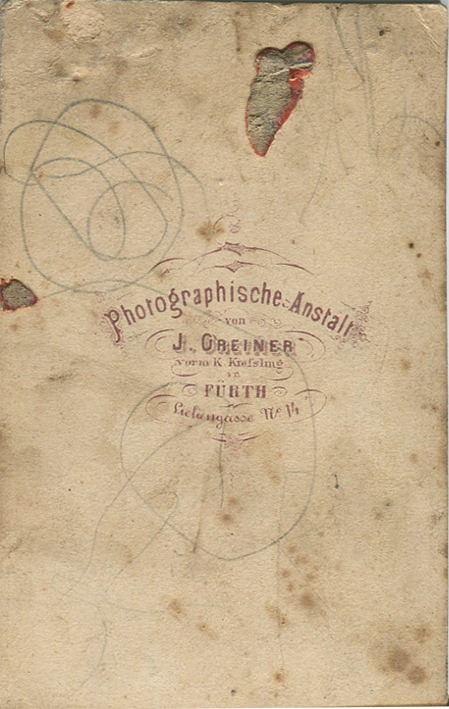 Photographische-Anstalt
von
J. GREINER
vorm K. Kießling
in
FÜRTH
No 14